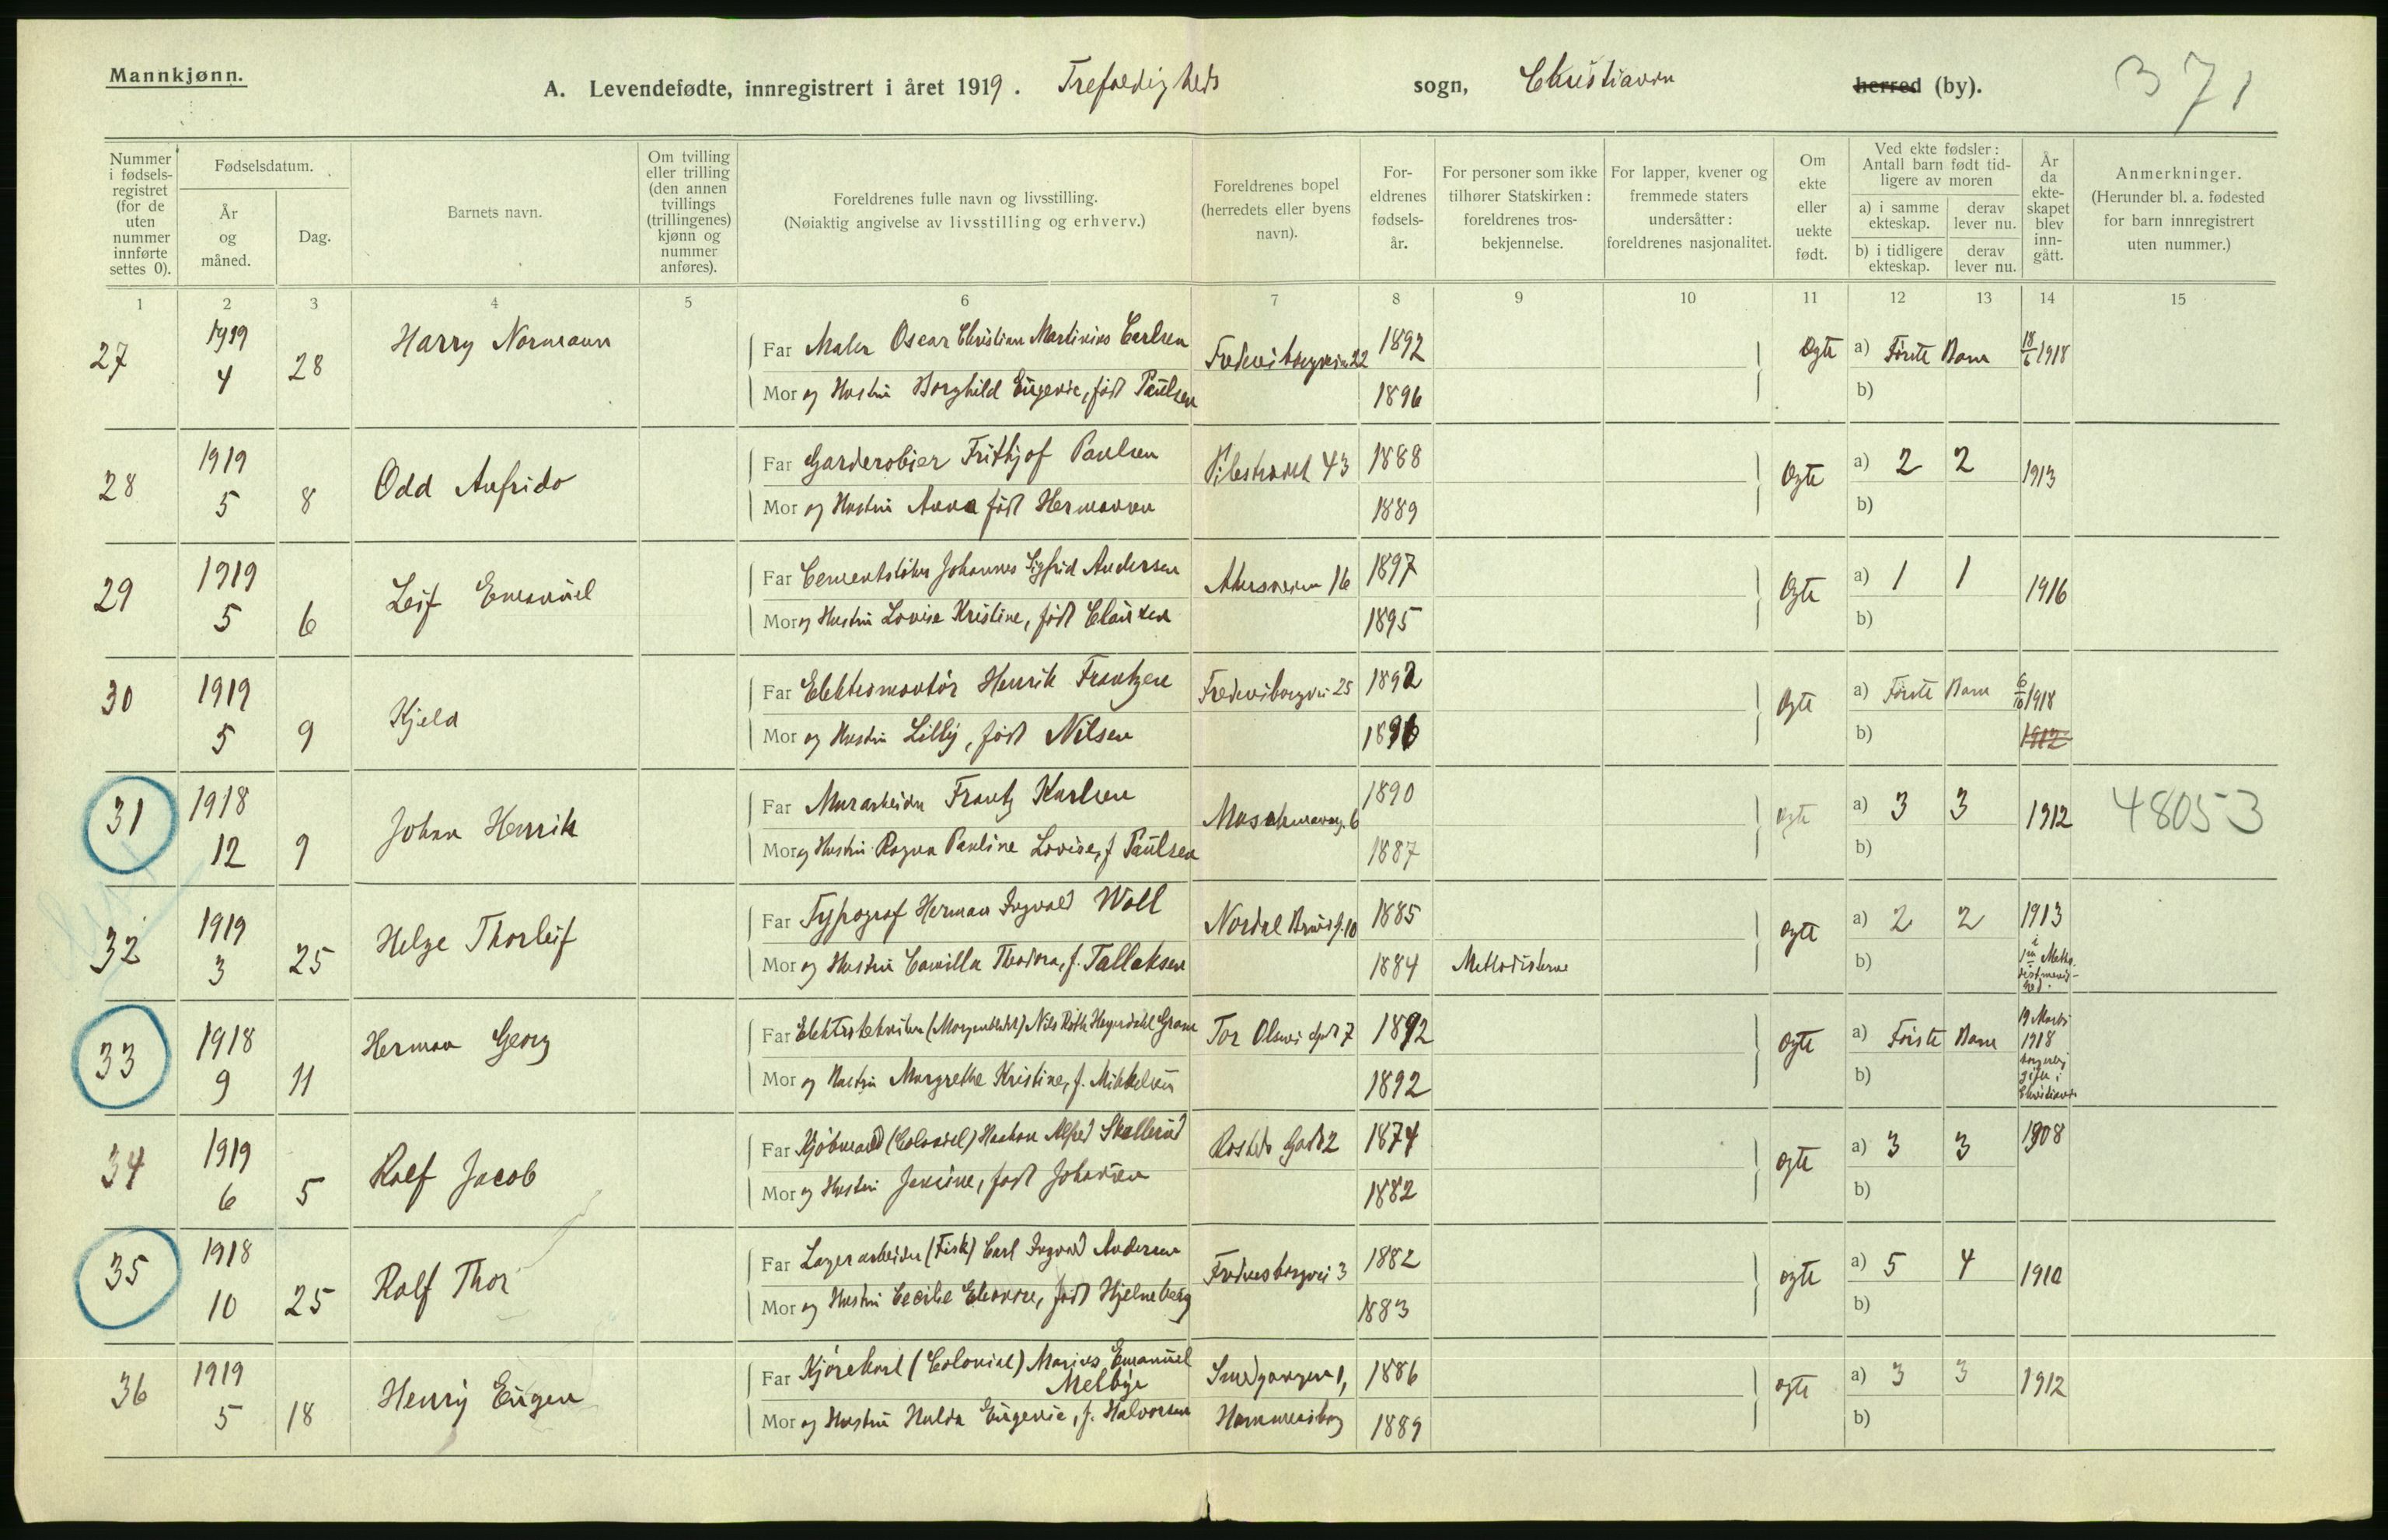 Mannkjønn.
A. Levendefødte, innregistrert i året 1919. Trefoldigheds sogn, Christiania herred (by). 371
Nummer i fødsels-registret (for de uten nummer innførte settes 0).
Fødselsdatum.
År og måned.
Dag.
Barnets navn.
Om tvilling eller trilling (den annen tvillings (trillingenes) kjønn og nummer anføres).
Foreldrenes fulle navn og livsstilling.
(Nøiaktig angivelse av livsstilling og erhverv.)
Foreldrenes bopel (herredets eller byens navn).
For-eldrenes fødsels-år.
For personer som ikke tilhører Statskirken: foreldrenes tros-bekjennelse.
For lapper, kvener og fremmede staters undersåtter: foreldrenes nasjonalitet.
Om ekte eller uekte født.
Ved ekte fødsler: Antall barn født tid-ligere av moren
a) i samme ekteskap.
derav lever nu.
b) i tidligere ekteskap.
derav lever nu.
År da ekte-skapet blev inn-gått.
Anmerkninger.
(Herunder bl. a. fødested for barn innregistrert uten nummer.)
1 2 3 4 5 6 7 8 9 10 11 12 13 14 15
27 1919 4 28 Harry Normann
Far Maler Oscar Christian Martinius Carlsen 1892 Ogte a) Förste Barn 18/6 1918
Mor og Hustru Borghild Eugenie, født Paulsen 1896 b)
28 1919 5 8 Odd Anfrido
Far Garderobier Frithjof Paulsen Pilestrædet 43 1888 Ogte a) 2 2 1913
Mor og Hustru Anna født Hermansen 1889 b)
29 1919 5 6 Leif Emanuel
Far Cementstöber Johannes Sigfrid Andersen Akersveien 16 1897 Ogte a) 1 1 1916
Mor og Hustru Lovise Kristine, født Clausen 1895 b)
30 1919 5 9 Kjeld
Far Elektromontör Henrik Frantzen Fredensborgvei 25 1892 Ogte a) Förste Barn 6/10 1918
Mor og Hustru Lilly, født Nilsen 1896 b) 1912
31 1918 12 9 Johan Henrik
Far Murarbeider Frantz Karlsen 1890 ogte a) 3 3 1912 48053
Mor og Hustru Ragna Pauline Lovise, f Paulsen 1887 b)
32 1919 3 25 Helge Thorleif
Far Typograf Herman Ingvald Woll Nordal Brunsg. 10 1885 ogte a) 2 2 1913
Mor og Hustru Camilla Theodora, f. Tallaksen 1884 Methodisterne b)
33 1918 9 11 Herman Georg
Far Elektrotekniker (Morgenbladet) Nils Roth Heyerdahl Gram Tor Olsens Gade 7 1892 ogte a) Förste Barn 19 Marts 1918 borgerlig gifte i Christiania
Mor og Hustru Margrethe Kristine, f. Mikkelsen 1892 b)
34 1919 6 5 Rolf Jacob
Far Kjöbmand (Colonial) Haakon Alfred Skallerud Rosteds Gade 2 1874 ogte a) 3 3 1908
Mor og Hustru Jensine, født Johansen 1882 b)
35 1918 10 25 Rolf Thor
Far Lagerarbeider (Fisk) Carl Ingvald Andersen Fredensborgvei 3 1882 ogte a) 5 4 1910
Mor og Hustru Cecilie Eleonore, født Hjelneberg 1883 b)
36 1919 5 18 Henry Eugen
Far Kjörekarl (Colonial) Marius Emanuel Melbye Smedgangen 1, 1886 ogte a) 3 3 1912
Mor og Hustru Hulda Eugenie, f. Halvorsen Hammersborg 1889 b)